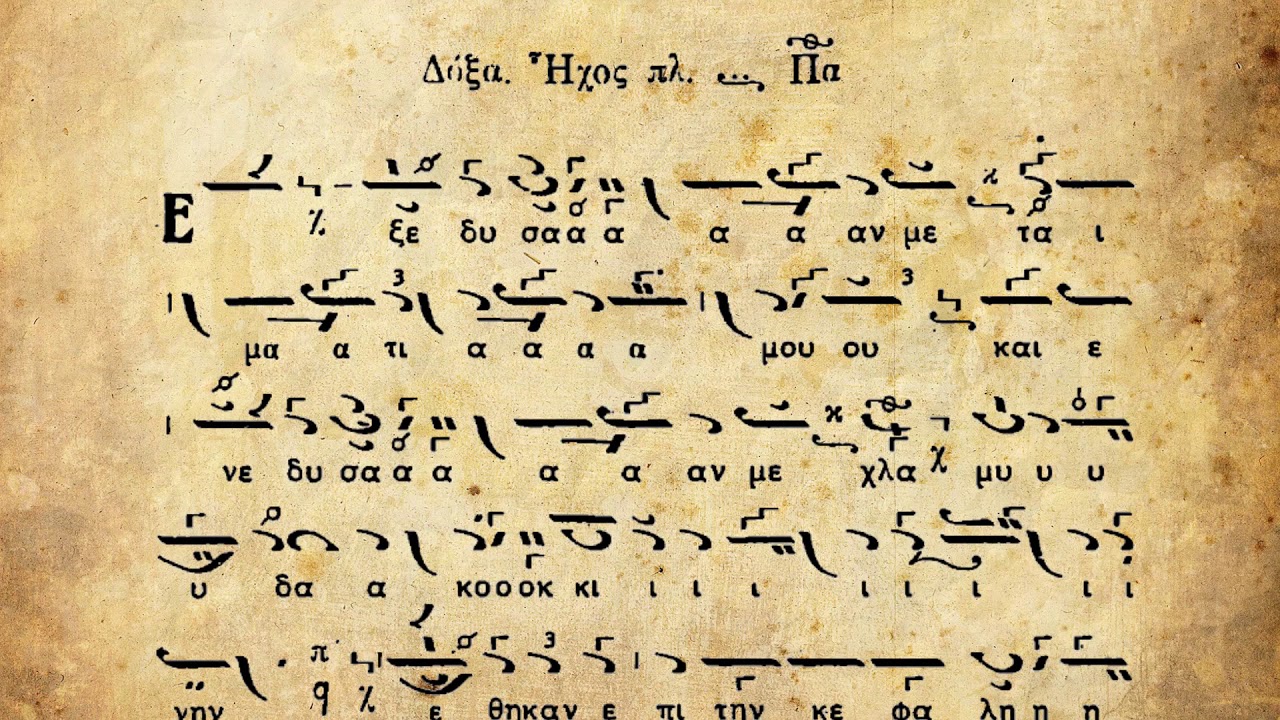 Δόξα. Ἦχος πλ. Πα
Ε ξε δυ σα α α α α αν με τα ι
μα α τι α α α α μου ου και ε
νε δυ σα α α α α αν με χλα μυ υ υ
υ δα α κο ο οκ κι ι ι ι ι ι ι ι ι
νην ε θηκαν ε πι την κε φα λη η η